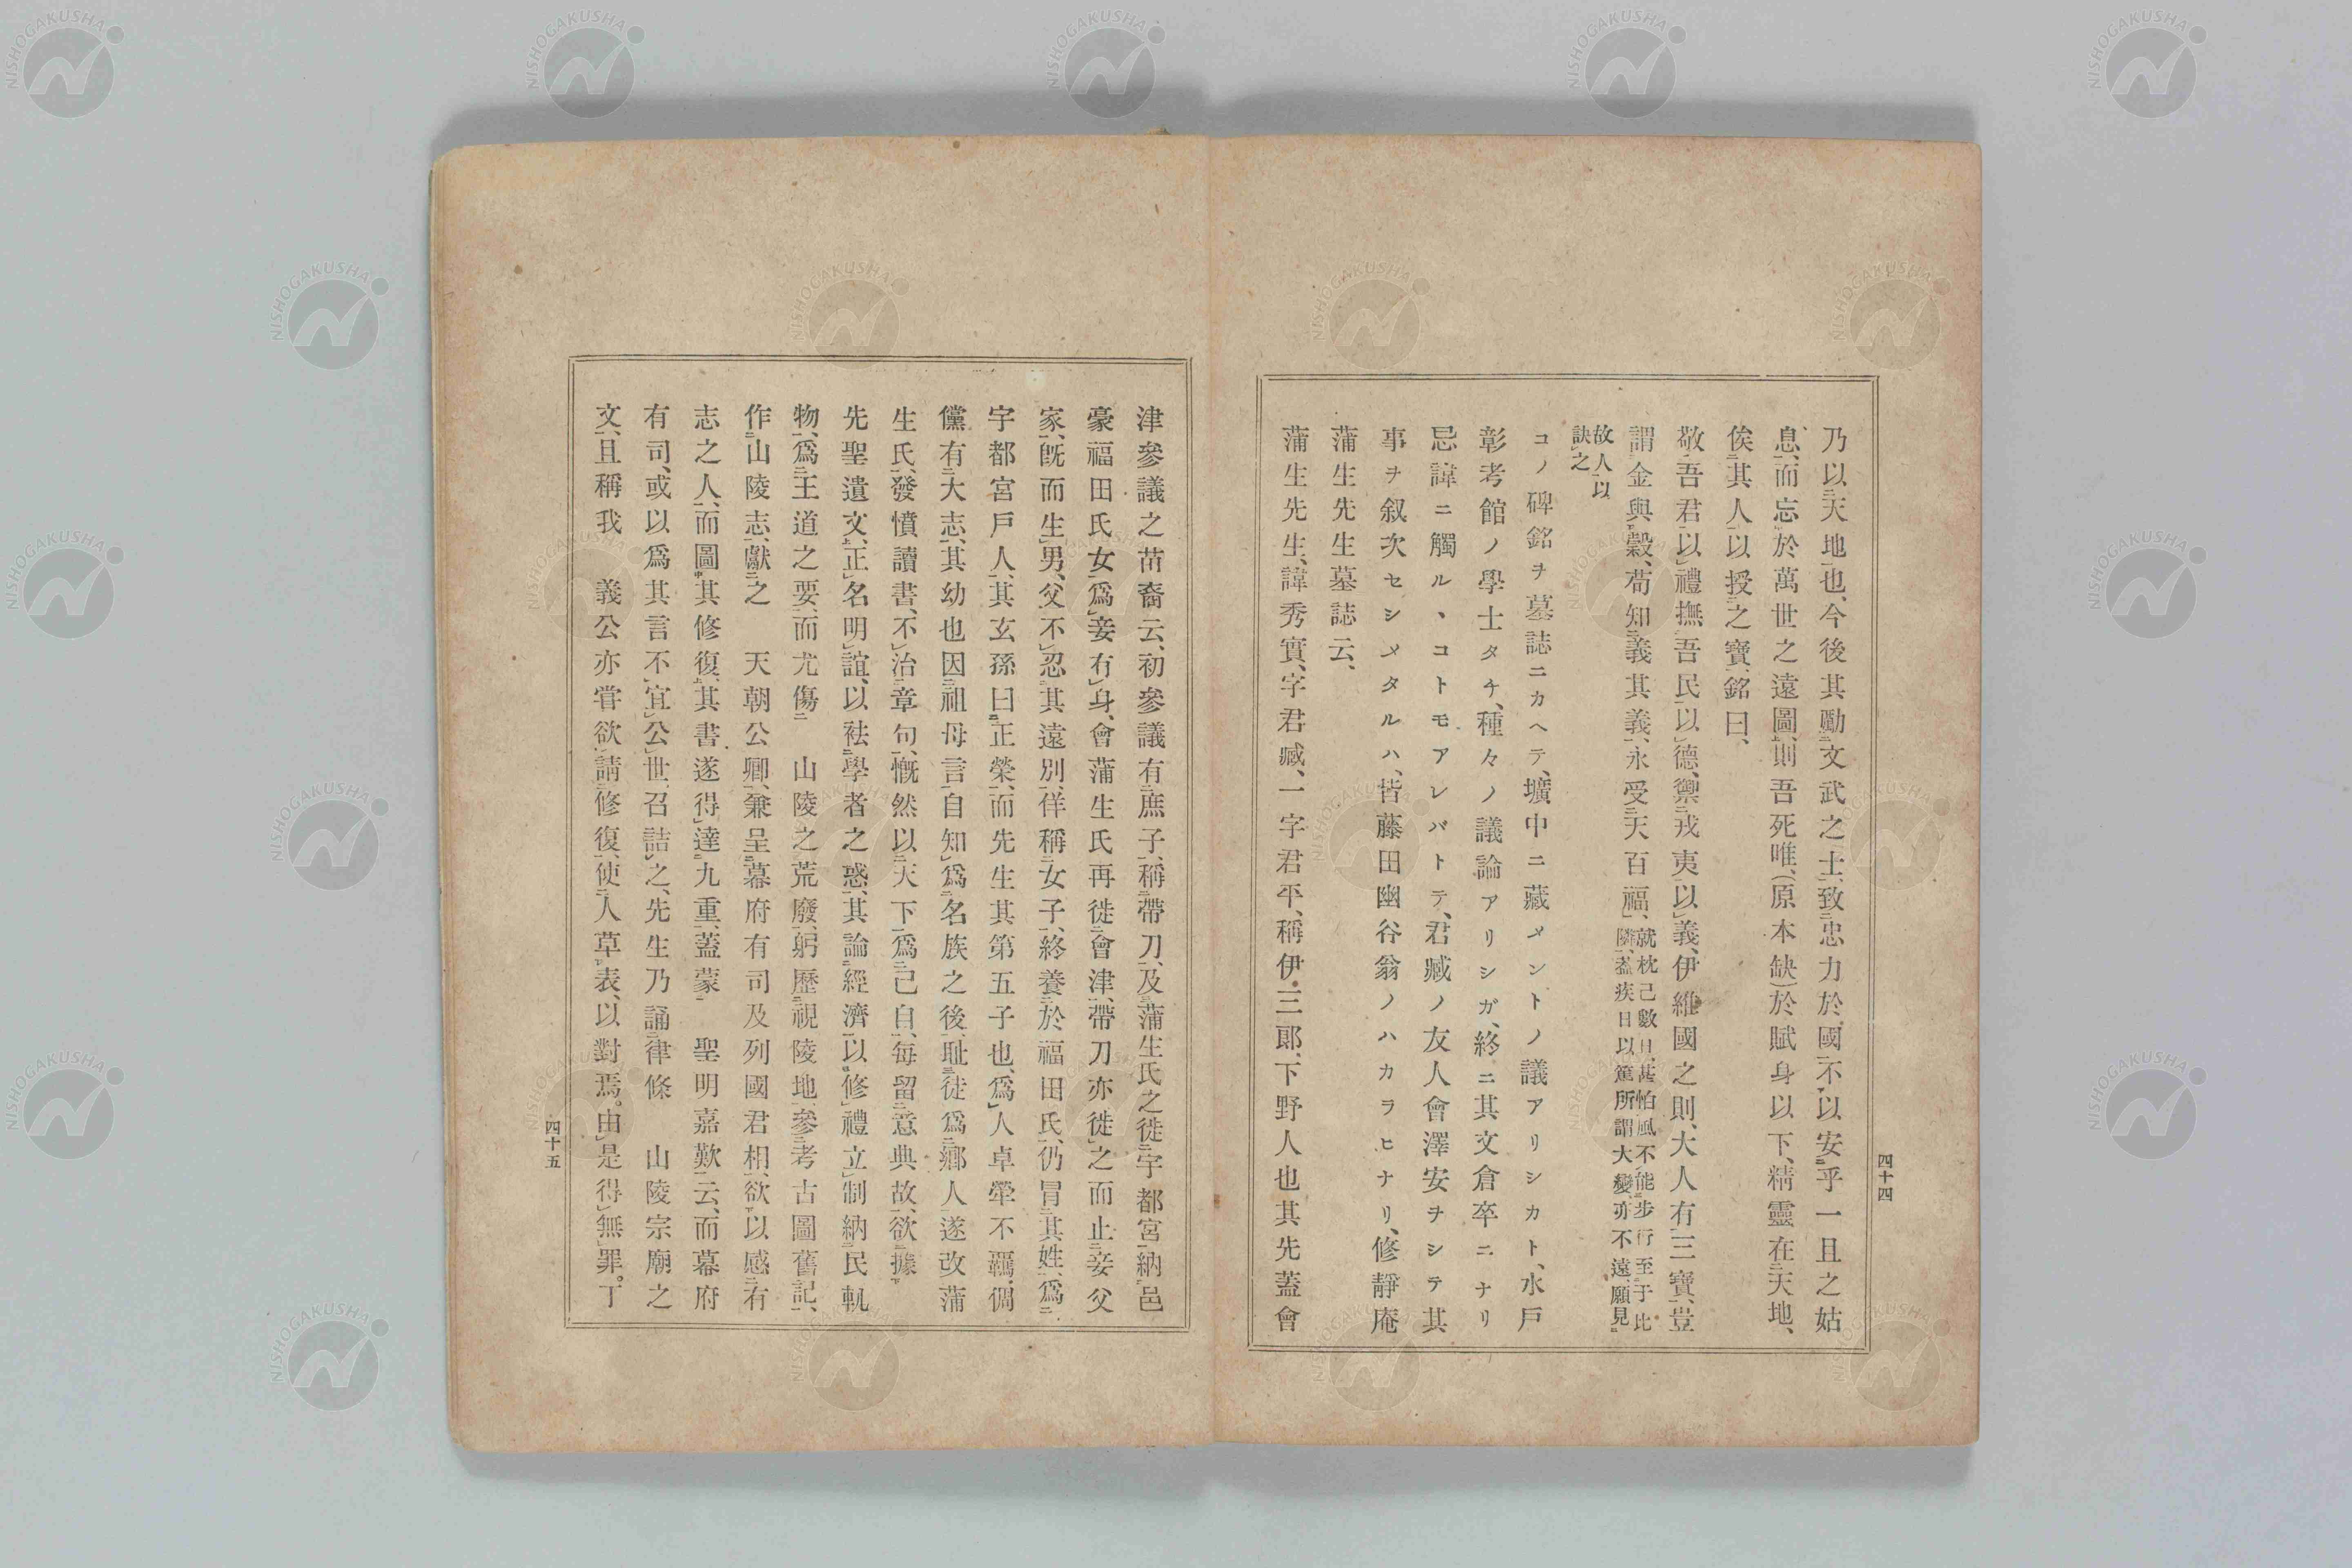 乃以天地也、今後其勵文武之士、致忠力於國、不以安乎一旦之姑
息、而忘於萬世之遠圖、則吾死唯、(原本缺)於賦身以下、精靈在天地、
俟其人以授之寶、銘曰、
敬吾君以禮撫吾民以德、禦戎夷以義、伊維國之則、大人有三寶、豈
謂金與穀、苟知義其義、永受天百福、就枕已數日、甚怕風不能步行至于比
隣、蓋疾日以篤所謂大變亦不遠、願見
故人以
訣之
コノ碑銘ヲ墓誌ニカヘテ、壙中ニ藏メントノ議アリシカト、水戸
彰考館ノ學士タチ、種々ノ議論アリシガ、終ニ其文倉卒ニナリ
忌諱ニ觸ル、コトモアレバトテ、君臧ノ友人會澤安ヲシテ其
事ヲ叙次セシメタルハ、皆藤田幽谷翁ノハカラヒナリ、修靜庵
蒲生先生墓誌云、
蒲生先生、諱秀實、字君臧、一字君平、稱伊三郎、下野人也其先蓋會
四十四
津參議之苗裔云、初參議有庶子、稱帶刀、及蒲生氏之徙宇都宮、納邑
豪福田氏女爲妾、有身、會蒲生氏再徙會津、帶刀亦徙之而止妾父
家、既而生男、父不忍其遠別、佯稱女子、終養於福田氏、仍冒其姓、爲
宇都宮戸人、其玄孫曰正榮、而先生其第五子也、爲人卓犖不羈、倜
儻有大志、其幼也因祖母言、自知爲名族之後、耻徒爲鄕人、遂改蒲
生氏、發憤讀書、不治章句、慨然以天下爲己自、每留意典故、欲據
先聖遺文、正名明誼、以袪學者之惑、其論經濟、以修禮立制納民軌
物、爲王道之要、而尤傷 山陵之荒廢、躬歷視陵地、參考古圖舊記、
作山陵志、獻之 天朝公卿、兼呈幕府有司及列國君相、欲以感有
志之人、而圖其修復、其書遂得達九重、蓋蒙 聖明嘉歎云、而幕府
有司、或以爲其言不宜公世、召詰之、先生乃誦律條 山陵宗廟之
文、且稱我 義公亦嘗欲請修復、使人草表、以對焉。由是得無罪。丁
四十五